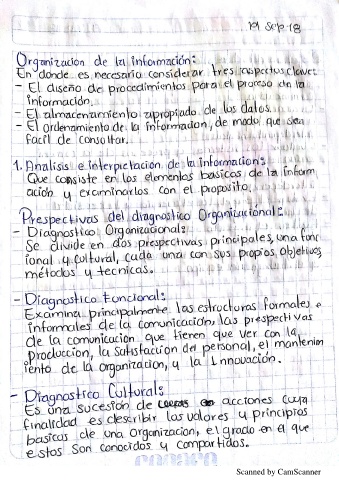 19 Sep-18
Organizacion de la información:
En donde es necesario considerar tres aspectos clave:
- El diseño de procedimientos para el proceso de la
información.
- El almacenamiento apropiado de los datos.
- El Ordenamiento de la informacion, de modo que sea
facil de consultar.
1. Analisis e interpretacion de la informacion:
Que consiste en los elementos basicos de la inform
ación y examinarlos con el proposito.
Prespectivas del diagnostico Organizacional:
- Diagnostico Organizacional:
Se divide en dos prespectivas principales, una func
ional y cultural, cada una con sus propios Objetivos
métodos y tecnicas.
- Diagnostico Funcional:
Examina principalmente las estructuras formales e
informales de la comunicación, las prespectivas
de la comunicación que tienen que ver con la
producción, la satisfacción del personal, el mantenim
iento de la organizacion, y la Innovación.
- Diagnostico Cultural:
Es una sucesión de acciones cuya
finalidad es describir los valores y principios
basicos de una Organizacion, el grado en el que
estos son conocidos y compartidos.
Scanned by CamScanner